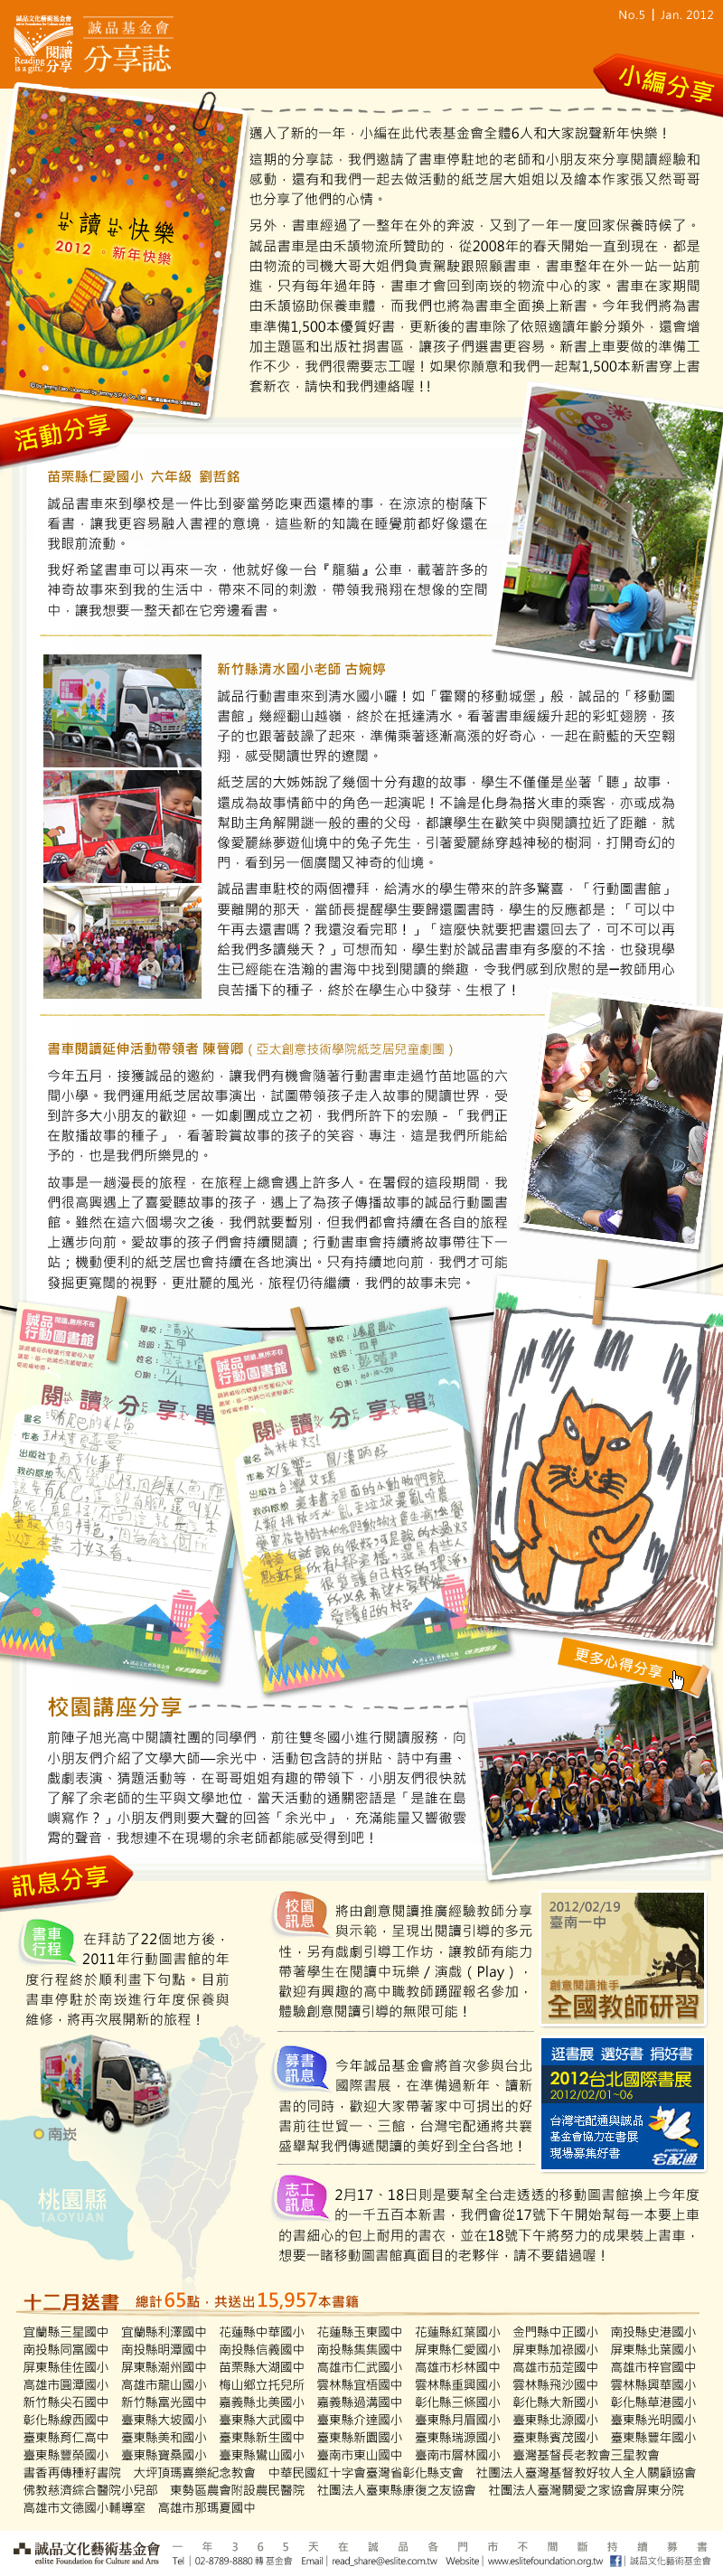 誠品文化藝術基金會
eslite Foundation for Culture and Arts
Reading is a gift.
閱讀分享
誠品基金會
分享誌
No.5 | Jan. 2012
小編分享
讀 快樂
2012 。新年快樂
邁入了新的一年，小編在此代表基金會全體6人和大家說聲新年快樂！
這期的分享誌，我們邀請了書車停駐地的老師和小朋友來分享閱讀經驗和
感動，還有和我們一起去做活動的紙芝居大姐姐以及繪本作家張又然哥哥
也分享了他們的心情。
另外，書車經過了一整年在外的奔波，又到了一年一度回家保養時候了。
誠品書車是由禾頡物流所贊助的，從2008年的春天開始一直到現在，都是
由物流的司機大哥大姐們負責駕駛跟照顧書車，書車整年在外一站一站前
進，只有每年過年時，書車才會回到南崁的物流中心的家。書車在家期間
由禾頡協助保養車體，而我們也將為書車全面換上新書。今年我們將為書
車準備1,500本優質好書，更新後的書車除了依照適讀年齡分類外，還會增
加主題區和出版社捐書區，讓孩子們選書更容易。新書上車要做的準備工
作不少，我們很需要志工喔！如果你願意和我們一起幫1,500本新書穿上書
套新衣，請快和我們連絡喔！！
活動分享
苗栗縣仁愛國小 六年級 劉哲銘
誠品書車來到學校是一件比到麥當勞吃東西還棒的事，在涼涼的樹蔭下
看書，讓我更容易融入書裡的意境，這些新的知識在睡覺前都好像還在
我眼前流動。
我好希望書車可以再來一次，他就好像一台『龍貓』公車，載著許多的
神奇故事來到我的生活中，帶來不同的刺激，帶領我飛翔在想像的空間
中，讓我想要一整天都在它旁邊看書。
新竹縣清水國小老師 古婉婷
誠品行動書車來到清水國小囉！如「霍爾的移動城堡」般，誠品的「移動圖
書館」幾經翻山越嶺，終於在抵達清水。看著書車緩緩升起的彩虹翅膀，孩
子的也跟著鼓譟了起來，準備乘著逐漸高漲的好奇心，一起在蔚藍的天空翱
翔，感受閱讀世界的遼闊。
紙芝居的大姊姊說了幾個十分有趣的故事，學生不僅僅是坐著「聽」故事，
還成為故事情節中的角色一起演呢！不論是化身為搭火車的乘客，亦或成為
幫助主角解開謎一般的畫的父母，都讓學生在歡笑中與閱讀拉近了距離，就
像愛麗絲夢遊仙境中的兔子先生，引著愛麗絲穿越神秘的樹洞，打開奇幻的
門，看到另一個廣闊又神奇的仙境。
誠品書車駐校的兩個禮拜，給清水的學生帶來的許多驚喜，「行動圖書館」
要離開的那天，當師長提醒學生要歸還圖書時，學生的反應都是：「可以中
午再去還書嗎？我還沒看完耶！」「這麼快就要把書還回去了，可不可以再
給我們多讀幾天？」可想而知，學生對於誠品書車有多麼的不捨，也發現學
生已經能在浩瀚的書海中找到閱讀的樂趣，令我們感到欣慰的是─教師用心
良苦播下的種子，終於在學生心中發芽、生根了！
書車閱讀延伸活動帶領者 陳晉卿（亞太創意技術學院紙芝居兒童劇團）
今年五月，接獲誠品的邀約，讓我們有機會隨著行動書車走過竹苗地區的六
間小學。我們運用紙芝居故事演出，試圖帶領孩子走入故事的閱讀世界，受
到許多大小朋友的歡迎。一如劇團成立之初，我們所許下的宏願－「我們正
在散播故事的種子」，看著聆賞故事的孩子的笑容、專注，這是我們所能給
予的，也是我們所樂見的。
故事是一趟漫長的旅程，在旅程上總會遇上許多人。在暑假的這段期間，我
們很高興遇上了喜愛聽故事的孩子，遇上了為孩子傳播故事的誠品行動圖書
館。雖然在這六個場次之後，我們就要暫別，但我們都會持續在各自的旅程
上邁步向前。愛故事的孩子們會持續閱讀；行動書車會持續將故事帶往下一
站；機動便利的紙芝居也會持續在各地演出。只有持續地向前，我們才可能
發掘更寬闊的視野，更壯麗的風光，旅程仍待繼續，我們的故事未完。
誠品行動圖書館
閱讀分享單
學校：清水
班級：五甲
姓名：
日期：12/4
書名
作者
出版社
我的感想
誠品行動圖書館
閱讀分享單
學校：
班級：四甲
姓名：
日期：
書名
作者
出版社
我的感想
更多心得分享
校園講座分享
前陣子旭光高中閱讀社團的同學們，前往雙冬國小進行閱讀服務，向
小朋友們介紹了文學大師—余光中，活動包含詩的拼貼、詩中有畫、
戲劇表演、猜題活動等，在哥哥姐姐有趣的帶領下，小朋友們很快就
了解了余老師的生平與文學地位，當天活動的通關密語是「是誰在島
嶼寫作？」小朋友們則要大聲的回答「余光中」，充滿能量又響徹雲
霄的聲音，我想連不在現場的余老師都能感受得到吧！
訊息分享
書車行程
在拜訪了22個地方後，
2011年行動圖書館的年
度行程終於順利畫下句點。目前
書車停駐於南崁進行年度保養與
維修，將再次展開新的旅程！
南崁
桃園縣
TAOYUAN
校園訊息
將由創意閱讀推廣經驗教師分享
與示範，呈現出閱讀引導的多元
性，另有戲劇引導工作坊，讓教師有能力
帶著學生在閱讀中玩樂／演戲（Play），
歡迎有興趣的高中職教師踴躍報名參加，
體驗創意閱讀引導的無限可能！
2012/02/19
臺南一中
創意閱讀推手
全國教師研習
募書訊息
今年誠品基金會將首次參與台北
國際書展，在準備過新年、讀新
書的同時，歡迎大家帶著家中可捐出的好
書前往世貿一、三館，台灣宅配通將共襄
盛舉幫我們傳遞閱讀的美好到全台各地！
逛書展 選好書 捐好書
2012台北國際書展
2012/02/01~06
台灣宅配通與誠品
基金會協力在書展
現場募集好書
pelican
宅配通
志工訊息
2月17、18日則是要幫全台走透透的移動圖書館換上今年度
的一千五百本新書，我們會從17號下午開始幫每一本要上車
的書細心的包上耐用的書衣，並在18號下午將努力的成果裝上書車，
想要一睹移動圖書館真面目的老夥伴，請不要錯過喔！
十二月送書 總計65點，共送出15,957本書籍
宜蘭縣三星國中 宜蘭縣利澤國中 花蓮縣中華國小 花蓮縣玉東國中 花蓮縣紅葉國小 金門縣中正國小 南投縣史港國小
南投縣同富國中 南投縣明潭國中 南投縣信義國中 南投縣集集國中 屏東縣仁愛國小 屏東縣加祿國小 屏東縣北葉國小
屏東縣佳佐國小 屏東縣潮州國中 苗栗縣大湖國中 高雄市仁武國小 高雄市杉林國中 高雄市茄萣國中 高雄市梓官國中
高雄市圓潭國小 高雄市龍山國小 梅山鄉立托兒所 雲林縣宜梧國中 雲林縣重興國小 雲林縣飛沙國中 雲林縣興華國小
新竹縣尖石國中 新竹縣富光國中 嘉義縣北美國小 嘉義縣過溝國中 彰化縣三條國小 彰化縣大新國小 彰化縣草港國小
彰化縣線西國中 臺東縣大坡國小 臺東縣大武國中 臺東縣介達國小 臺東縣月眉國小 臺東縣北源國小 臺東縣光明國小
臺東縣育仁高中 臺東縣美和國小 臺東縣新生國中 臺東縣新園國小 臺東縣瑞源國小 臺東縣賓茂國小 臺東縣豐年國小
臺東縣豐榮國小 臺東縣寶桑國小 臺東縣鸞山國小 臺南市東山國中 臺南市層林國小 臺灣基督長老教會三星教會
書香再傳種籽書院 大坪頂瑪喜樂紀念教會 中華民國紅十字會臺灣省彰化縣支會 社團法人臺灣基督教好牧人全人關顧協會
佛教慈濟綜合醫院小兒部 東勢區農會附設農民醫院 社團法人臺東縣康復之友協會 社團法人臺灣關愛之家協會屏東分院
高雄市文德國小輔導室 高雄市那瑪夏國中
誠品文化藝術基金會
eslite Foundation for Culture and Arts
一年365天在誠品各門市不間斷持續募書
Tel | 02-8789-8880 轉 基金會 Email | read_share@eslite.com.tw Website | www.eslitefoundation.org.tw | 誠品文化藝術基金會